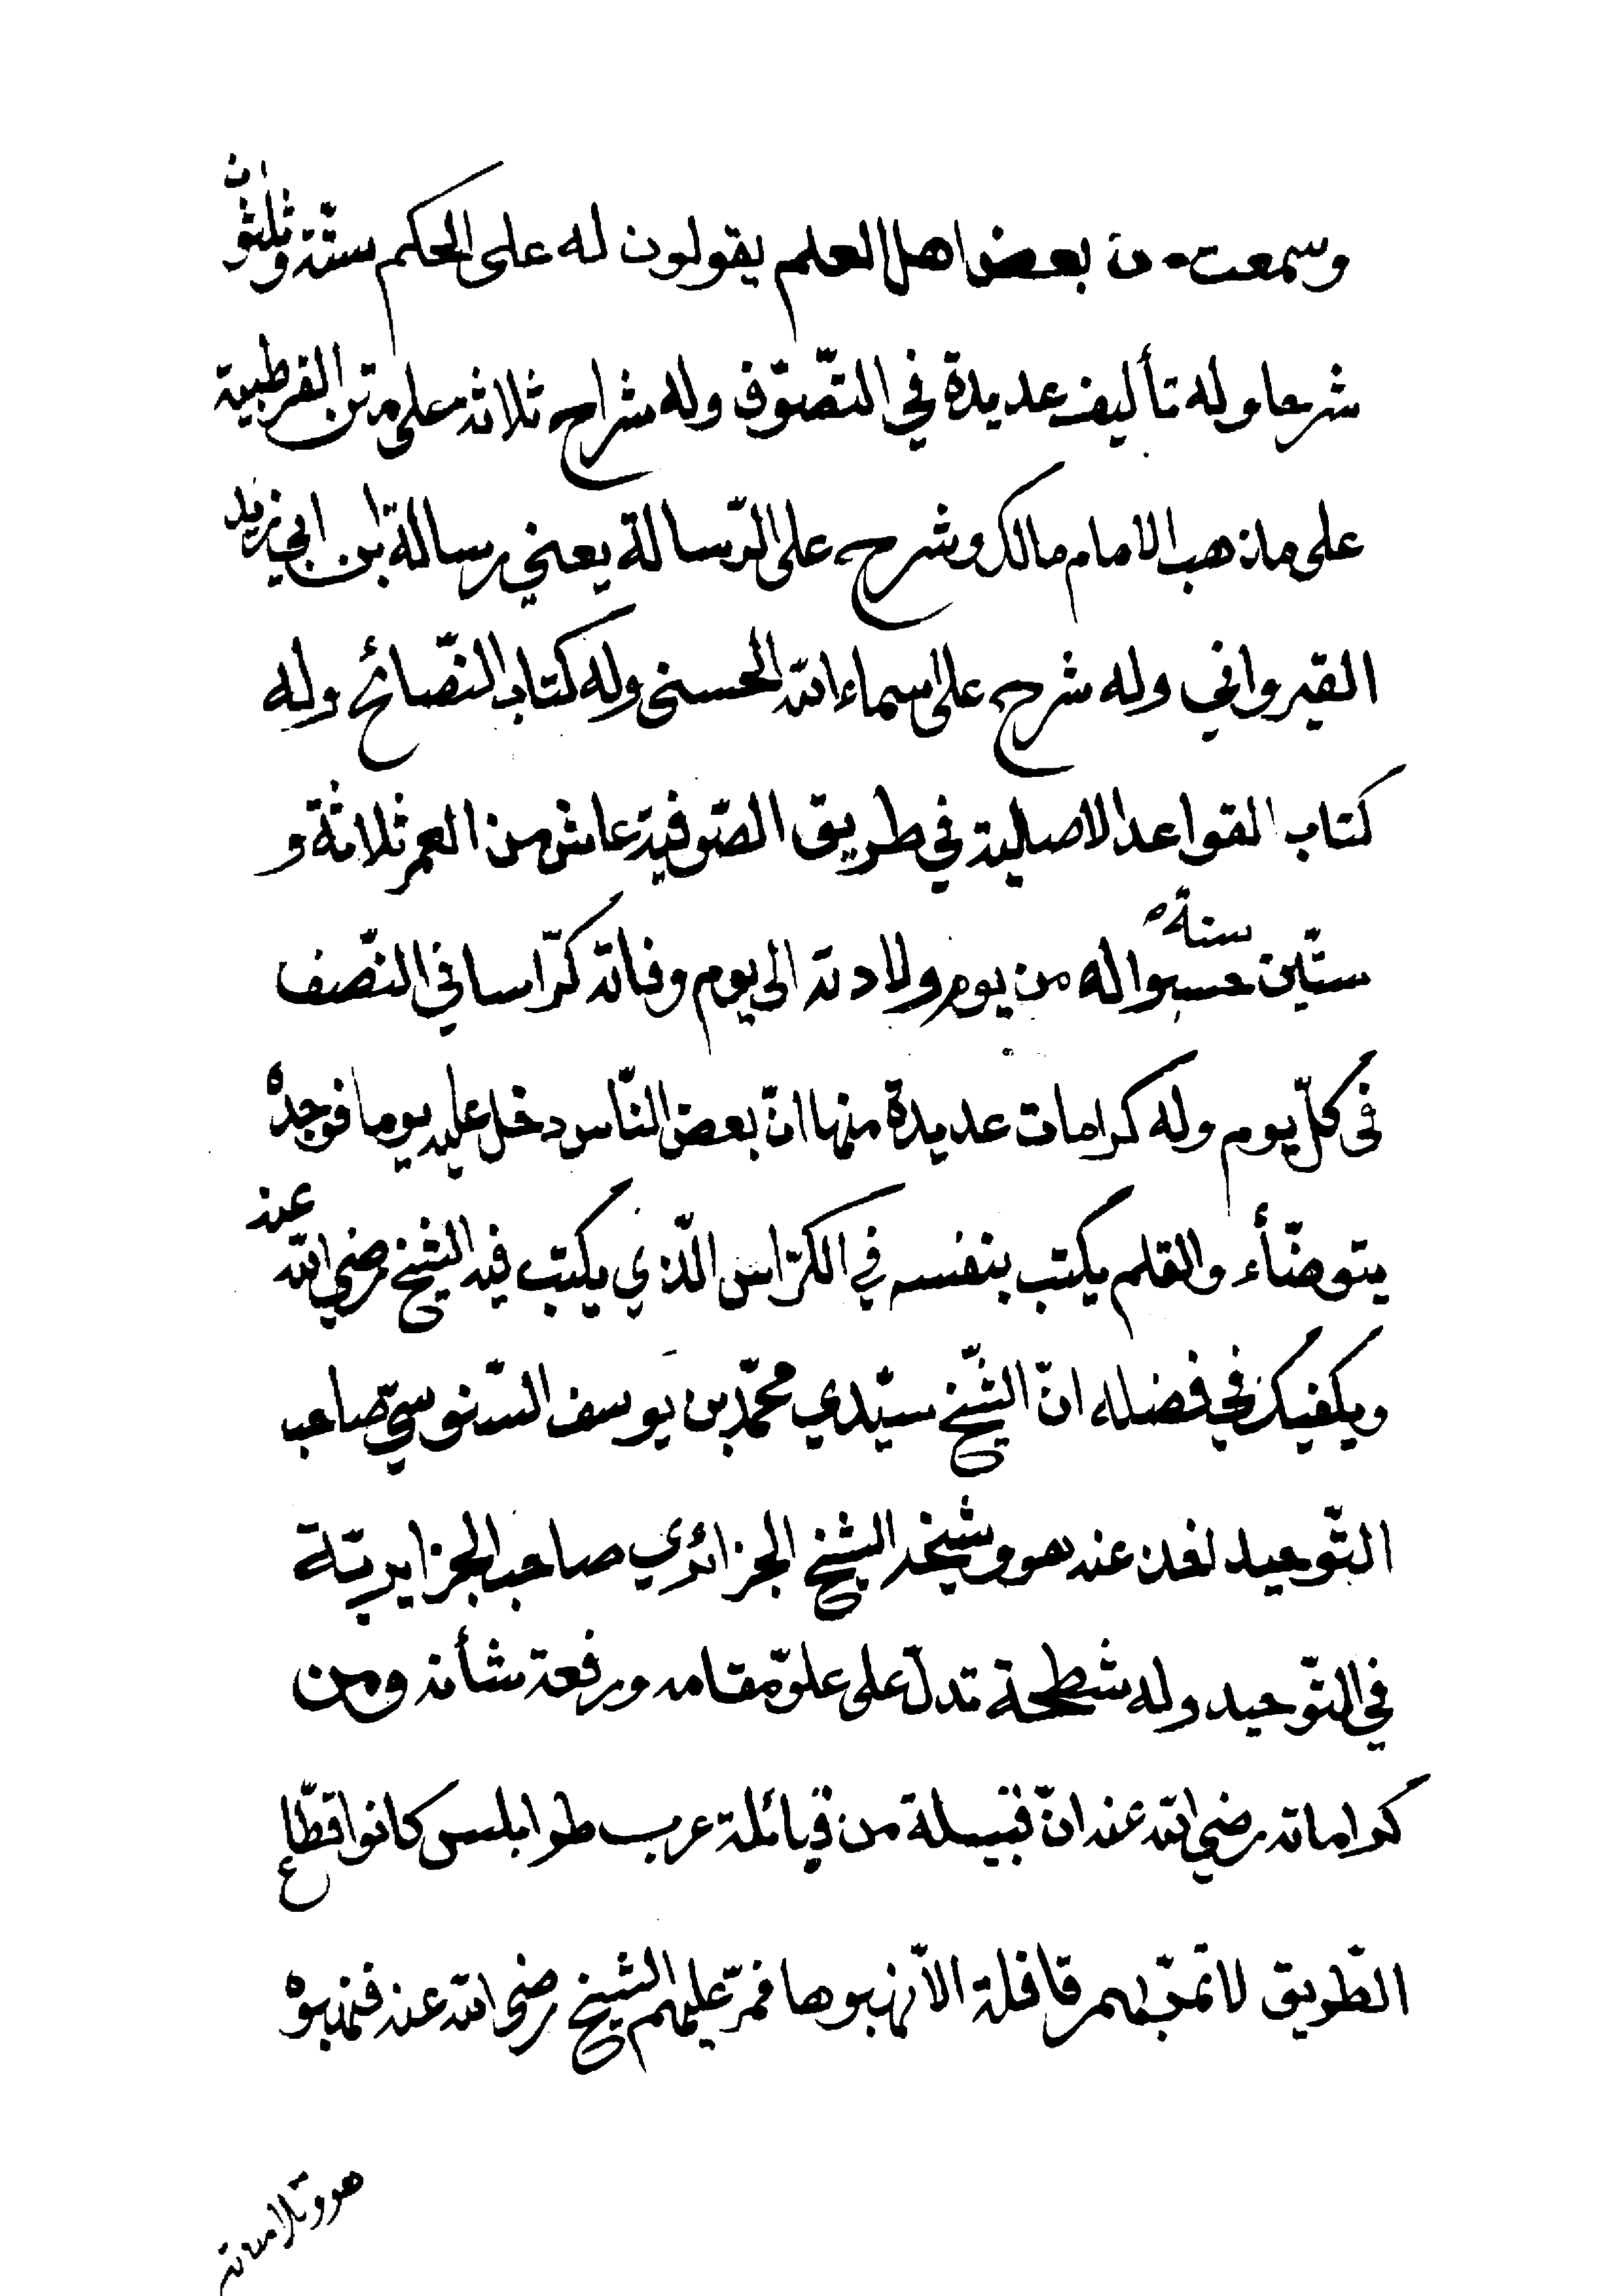 وسمعت من بعض اهل العلم يقولون له على الحكم ستّة وثلثون
شرحا وله تأليف عديدة في التصّوّف وله شراح ثلاثة على متن القرطبية
على مذهب الامام مالك وشرح على الرّسالة يعني رسالة ابن ابي زيد
القيرواني وله شرح على اسماء الله الحسنى وله كتاب النصّائح وله
كتاب القواعد الاصلية في طريق الصّوفية عاش من العمر ثلاثة و
ستّين سنة حسبوا له من يوم ولادته الى يوم وفاته كرّاسا في النصّف
في كلّ يوم وله كرامات عديدة منها انّ بعض النّاس دخل عليه يوما فوجده
يتوضّأء والقلم يكتب بنفسه في الكرّاس الّذي يكتب فيه الشيخ رضي الله عنه
ويكفيك في فضله انّ الشّيخ سيّدي محمّد بن يوسف السّنوسيّ صاحب
التّوحيد اخذ عنه هو وشيخه الشيخ الجزائري صاحب الجزايريّة
في التّوحيد وله شطحة تدلّ على علوّ مقامه ورفعة شأنه ومن
كراماته رضي الله عنه انّ قبيلة من قبائلة عرب طرابلس كانوا قطّاع
الطّريق لا تمرّ بهم قافلة الاّ نهبوها فمرّ عليهم الشيخ رضى الله عنه فنهبوه
هو وتلامذته